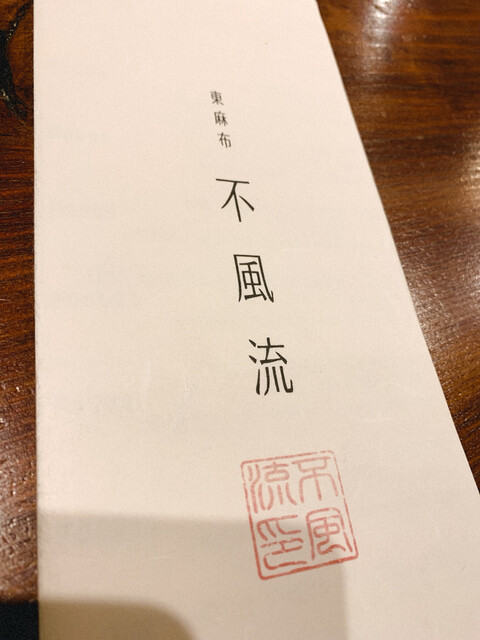 東麻布
不風流
不風
流印